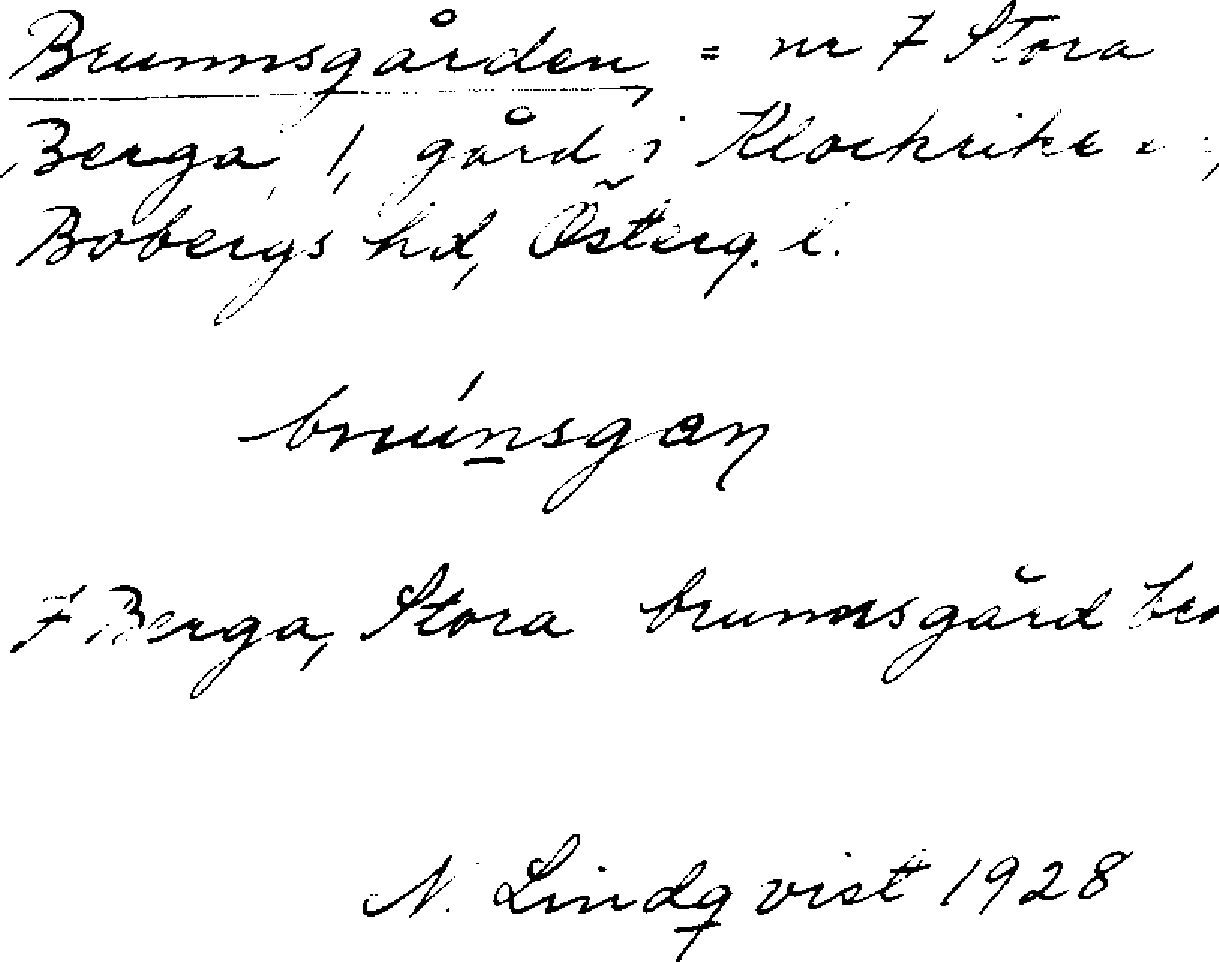 Brunnsgården, = nr 7 Stora
Berga, 1, gård i Klockrike
Bobergs hd, Österg. l.
7 Berga, Stora brunnsgård
N. Lindqvist 1928